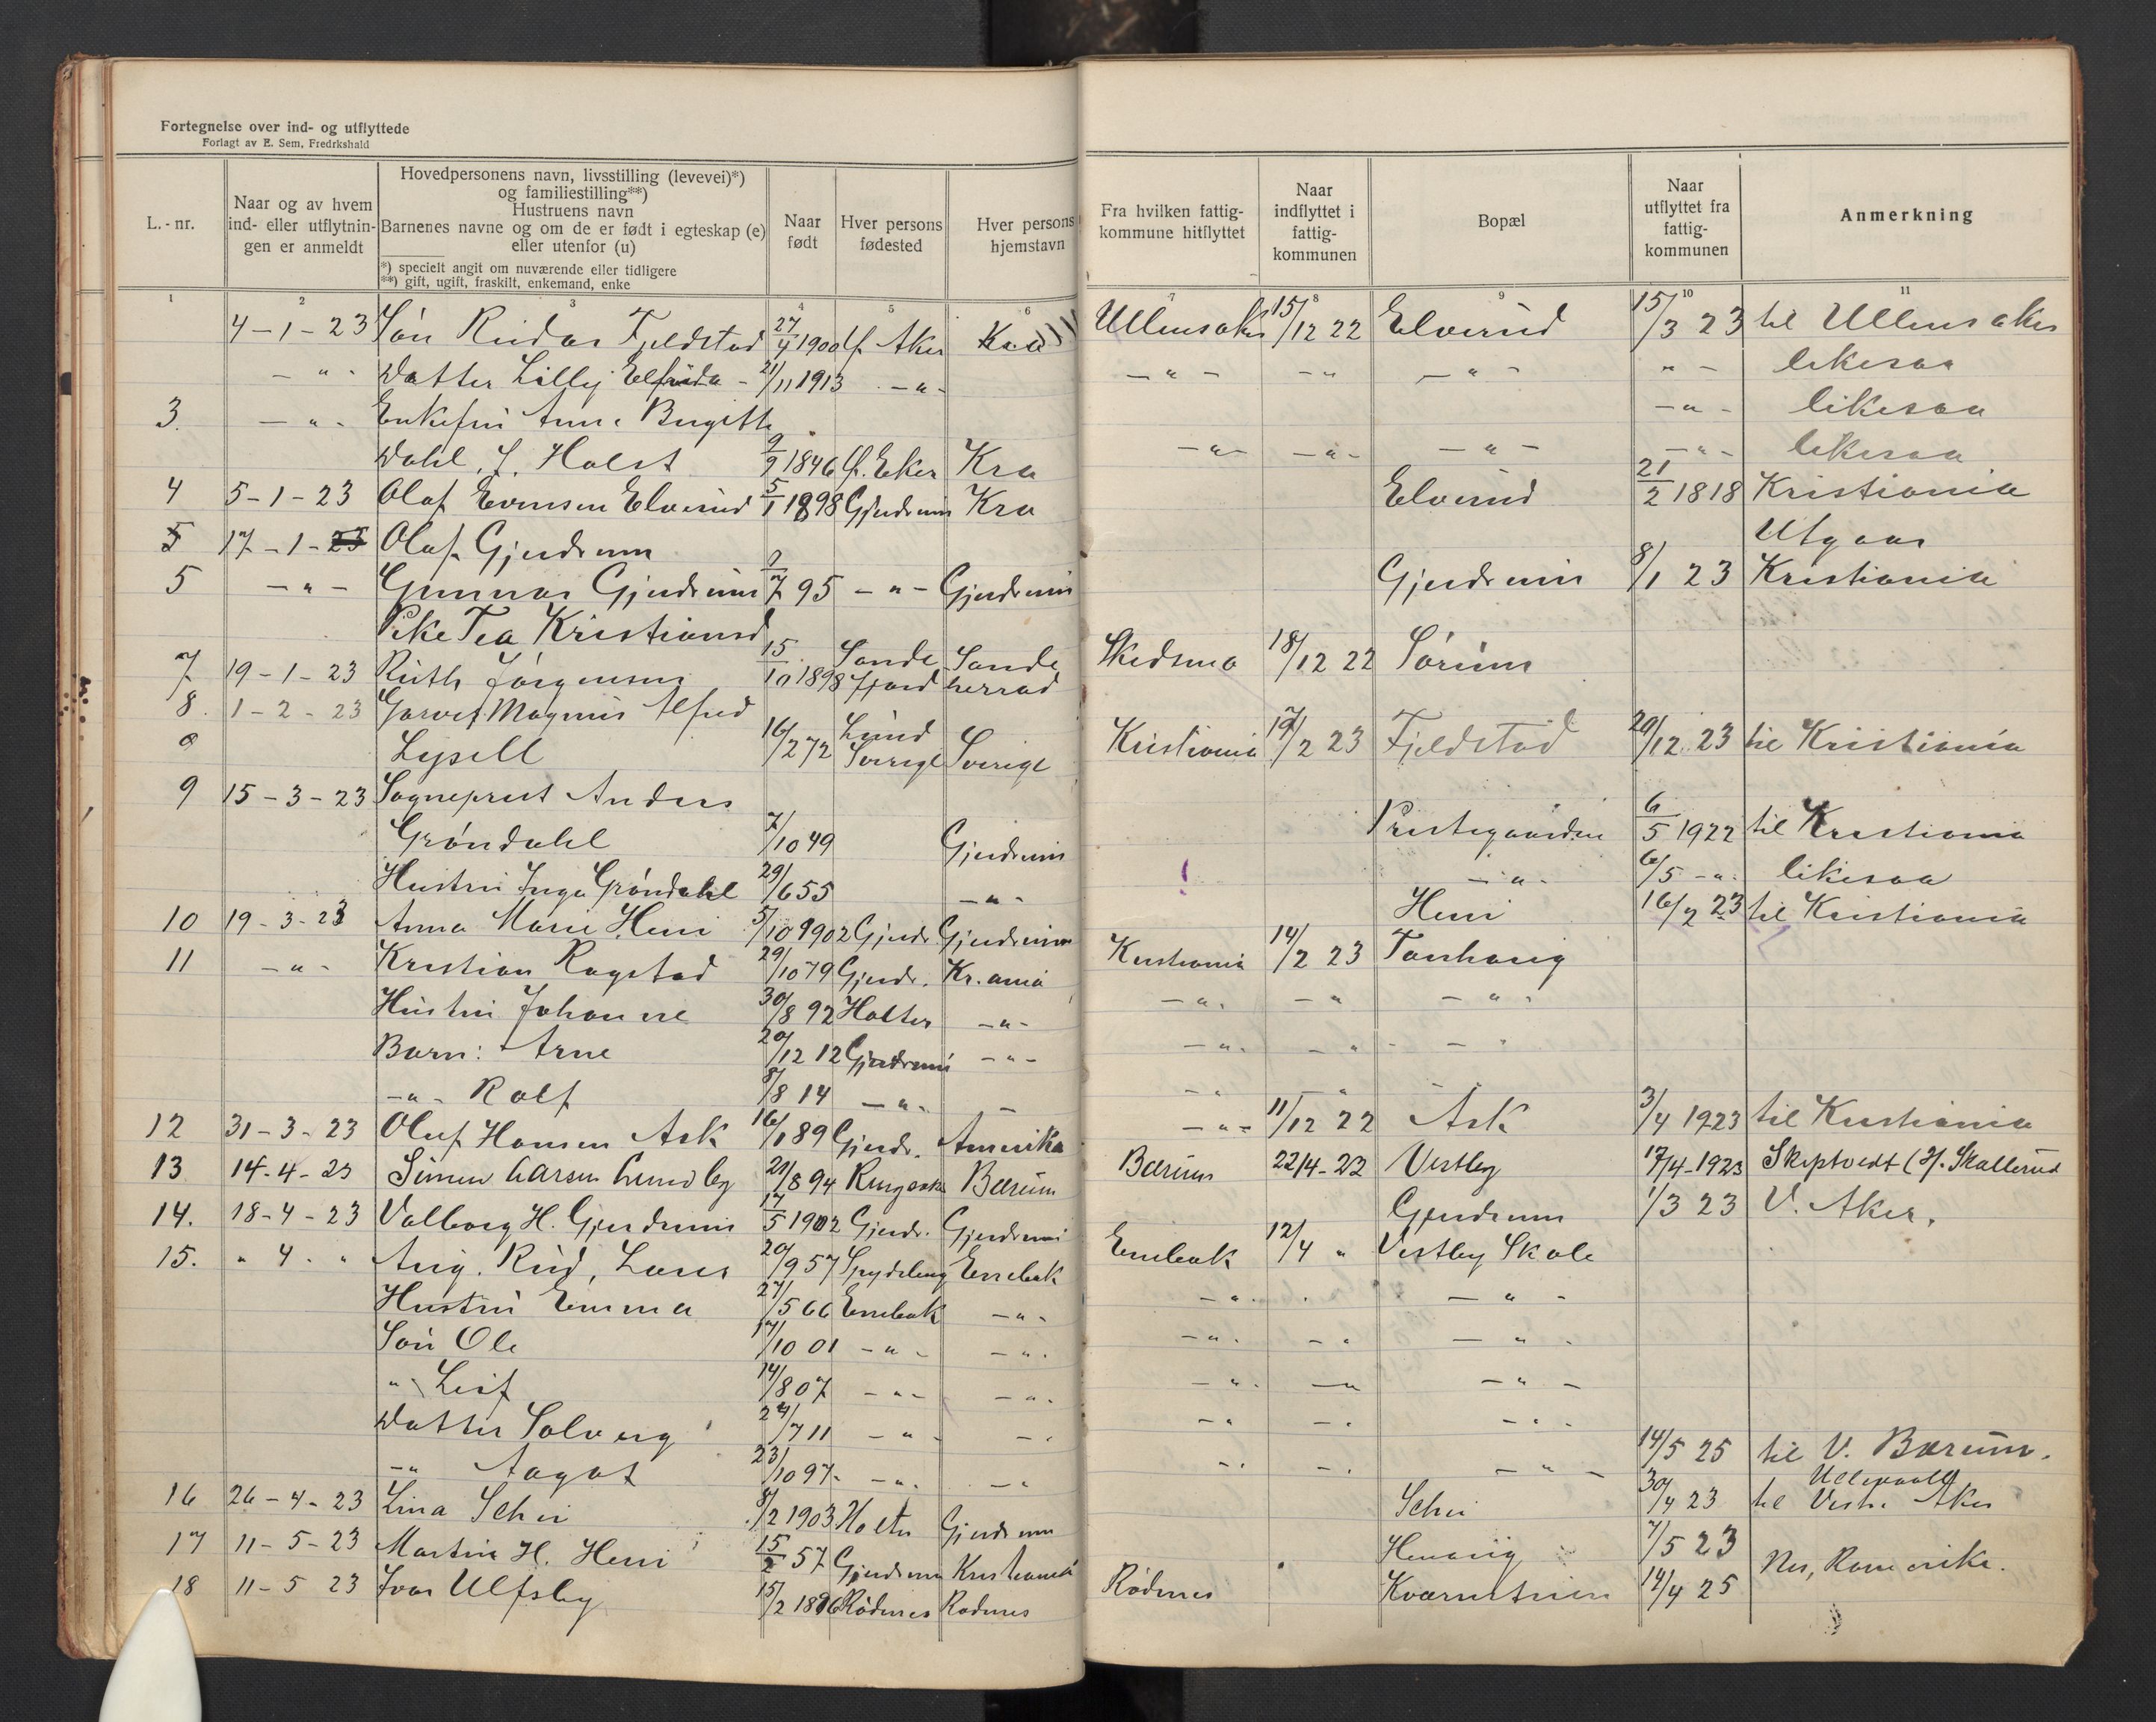 Fortegnelse over ind- og utflyttede
Forlagt av E. Sem, Fredrkshald
L.-nr.
Naar og av hvem ind- eller utflytnin- gen er anmeldt
Hovedpersonens navn, livsstilling (levevei)*) og familiestilling**)
Hustruens navn
Barnenes navne og om de er født i egteskap (e) eller utenfor (u)
*) specielt angit om nuværende eller tidligere
**) gift, ugift, fraskilt, enkemand, enke
Naar født
Hver persons fødested
Hver persons hjemstavn
Fra hvilken fattig- kommune hitflyttet
Naar indflyttet i fattig- kommunen
Bopæl
Naar utflyttet fra fattig- kommunen
Anmerkning
1 2 3 4 5 6 7 8 9 10 11
4-1-23 Søn Reidar Fjeldstad 27/4 1900 Aker Kra Ullensaker 15/12 22 Elverud 15/3 23 til Ullensaker
-"- Datter Lilly Elfrida 21/11 1913 -"- -"- -"- -"- "- likesaa
3. -"- Enkefru Anna Birgitte -"- likesaa
Dahl, f. Holst 9/9 1846 Eker Kra -"- -"- -"- -"- likesaa
4 5-1-23 Olaf Evensen Elverud 5/1 1898 Gjerdrum Kra Elverud 21/2 1818 Kristiania
5 17-1-23 Olaf Gjerdrum Utgaar
5 -"- Gunnar Gjerdrum 9/7 95 -"- Gjerdrum Gjerdrum 8/1 23 Kristiania
Pike Tea Kristiansd
7 19-1-23 Ruth Jørgensen 15/10 1898 Sandefjord Sandeherrad Skedsmo 18/12 22 Sørum
8. 1-2-23 Magnus Alfred
9 Lysell 16/2 72 Lund Sverige Sverige Kristiania 19/2 23 Fjeldstad 29/12 23 til Kristiania
9 15-3-23 Sogneprest Anders
Grøndahl 7/10 49 Gjerdrum Prestegaarden 6/5 1922 til Kristiania
Hustru Inga Grøndahl 29/6 55 -"- -"- 6/5 -"- likesaa
10 19-3-23 Anna Marie Heni 5/10 1902 Gjerdr. Gjerdrum Heni 16/2 23 til Kristiania
11 -"- Kristian Rogstad 29/10 79 Gjerdr. Kr.ania Kristiania 14/2 23
Hustru Johanne 30/8 92 Holter -"- -"- -"- -"-
Barn: Arne 20/12 12 Gjerdrum -"- -"- -"- -"-
-"- Rolf 8/8 14 -"- - -"- -"-
12 31-3-23 Oluf Hansen Ask 16/1 89 Gjerdr. Amerika -"- 11/12 22 Ask 3/4 1923 til Kristiania
13 14-4-23 Simen Larsen Lundby 29/8 94 Bærum Bærum 22/4-22 Vestby 17/4-1923 Skiptvedt
14. 18-4-23 Valborg H. Gjerdrum 17/5 1902 Gjerdr. Gjerdrum Gjerdrum 1/3 23 V. Aker.
15. " 4 " Aug. Rud, Lærer 20/9 57 Spydeberg Enebak Enebak 12/4 " Vestby Skole
Hustru Emma 27/5 66 Enebak -"- -"- -"-
Søn Ole 17/10 01 -"- -"- -"- -"- -"-
" Leif 14/8 07 -"- -"- -"- -"- -"-
Datter Solveig 24/7 11 -"- -"- -"- -"- -"-
-"- Aagot 23/10 97 -"- -"- -"- -"- -"- 14/5 25 til V. Bærum.
Ullevaal
16 26-4-23 Lina Schei 8/2 1903 Holter Gjerdrum Schei 30/4 23 til Vestre Aker
17 11-5-23 Martin H. Heni 15/2 57 Gjerdrum Kristiania 7/5 23
18 11-5 23 Ivar Ulfsby 15/2 Rødenes Rødenes Rødenes 14/4 25 Nes, Romerike.